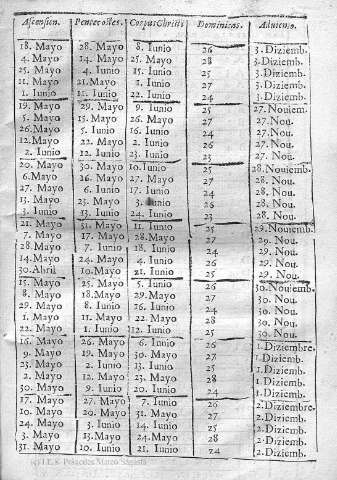 Ascension. Pentecostes. Corpus Christi Dominicas. Aduiento.
18. Mayo 28. Mayo 8. Iunio 26 3. Diziemb.
4. Mayo 14. Mayo 25. Mayo 28 3. Diziemb.
25. Mayo 4. Iunio 15. Iunio 25 3. Diziemb.
11. Mayo 21. Mayo 1. Iunio 27 3. Diziemb.
1. Iunio 11. Iunio 22. Iunio 24 3. Diziemb.
19. Mayo 29. Mayo 9. Iunio 25 27. Nouiem.
5. Mayo 15. Mayo 26. Mayo 27 27. Nou.
26. Mayo 5. Iunio 16. Iunio 24 27. Nou.
12. Mayo 22. Mayo 2. Iunio 26 27. Nou.
2. Iunio 12. Iunio 23. Iunio 23 27. Nou.
20. Mayo 30. Mayo 10. Iunio 25 28. Nouiemb.
6. Mayo 16. Mayo 27. Mayo 27 28. Nou.
27. Mayo 6. Iunio 17. Iunio 24 28. Nou.
13. Mayo 23. Mayo 3. Iunio 26 28. Nou.
3. Iunio 13. Iunio 24. Iunio 23 28. Nou.
21. Mayo 31. Mayo 11. Iunio 25 29. Nouiemb.
7. Mayo 17. Mayo 28. Mayo 27 29. Nou.
28. Mayo 7. Iunio 18. Iunio 24 29. Nou.
14. Mayo 24. Mayo 4. Iunio 26 29. Nou.
30. Abril 10. Mayo 21. Mayo 28 29. Nou.
15. Mayo 25. Mayo 5. Iunio 26 30. Nouiemb.
8. Mayo 18. Mayo 29. Mayo 27 30. Nou.
29. Mayo 8. Iunio 26. Iunio 30. Nou.
1. Mayo 11. Mayo 22. Mayo 28 30. Nou.
22. Mayo 1. Iunio 12. Iunio 25 30. Nou.
16. Mayo 26. Mayo 6. Iunio 26 1. Diziembre.
9. Mayo 19. Mayo 30. Mayo 27 1. Diziemb.
23. Mayo 2. Iunio 13. Iunio 25 1. Diziemb.
2. Mayo 12. Mayo 23. Mayo 28 1. Diziemb.
30. Mayo 9. Iunio 20. Iunio 24 1. Diziemb.
17. Mayo 27. Mayo 7. Iunio 26 2. Diziembre.
10. Mayo 20. Mayo 31. Mayo 27 2. Diziemb.
24. Mayo 3. Iunio 14. Iunio 25 2. Diziemb.
3. Mayo 13. Mayo 24. Mayo 28 2. Diziemb.
31. Mayo 10. Iunio 21. Iunio 24 2. Diziemb.